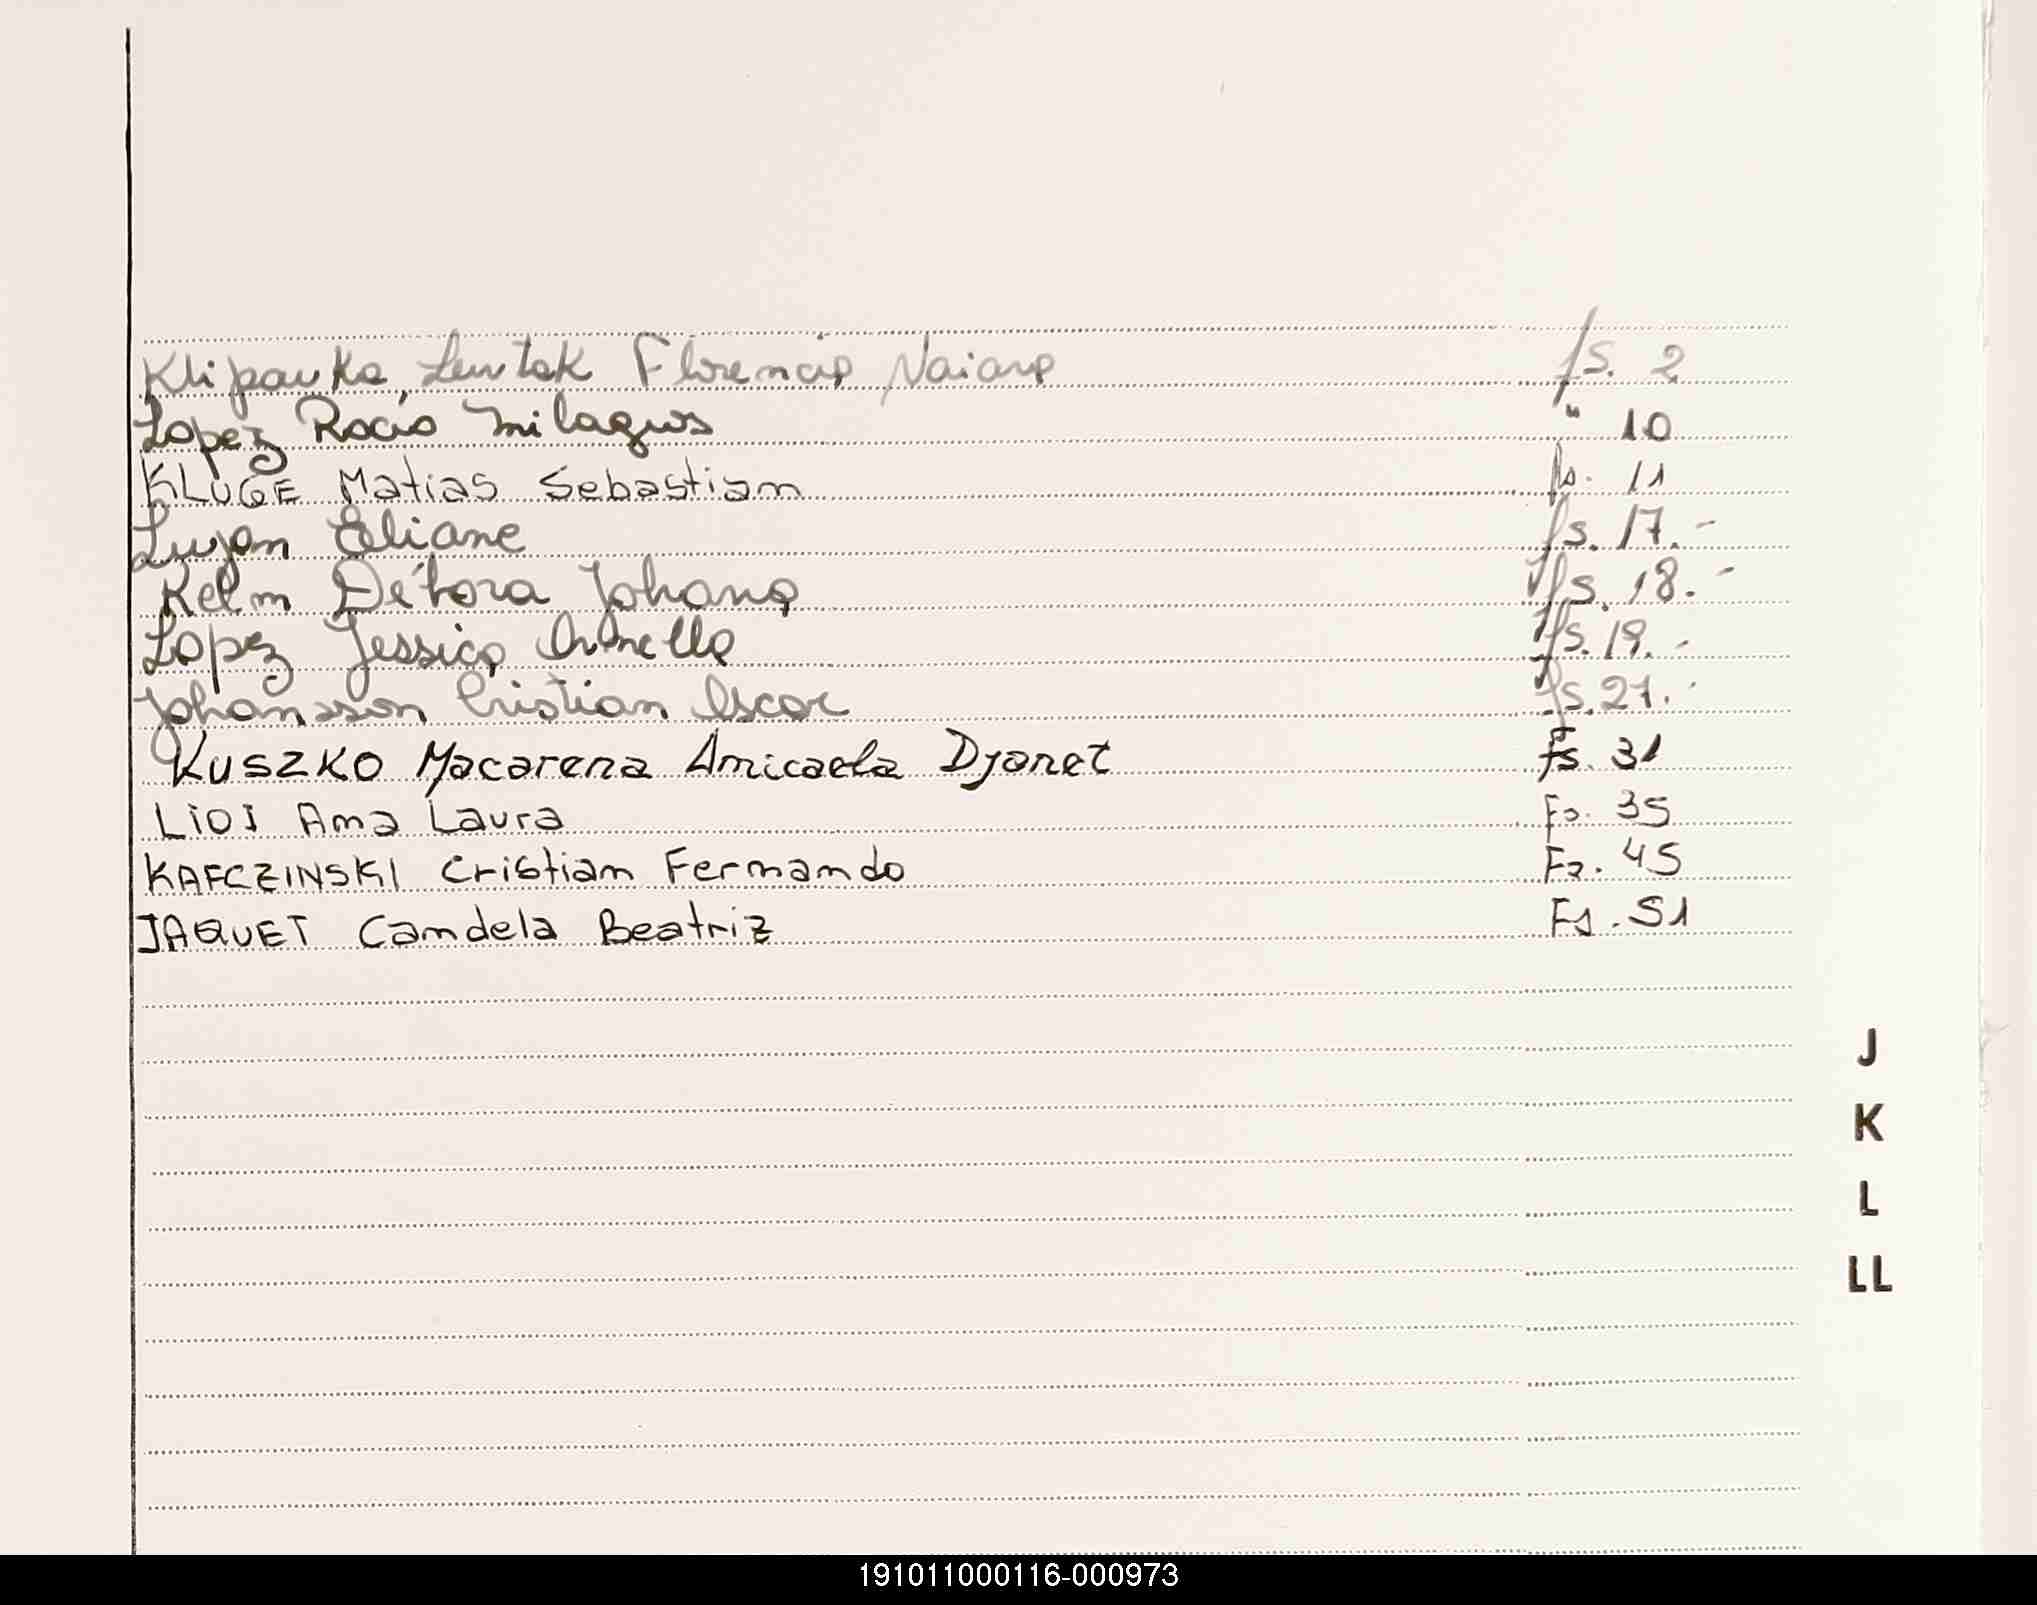 Klipauka Lewtak Florencia Naiara fs. 2
Lopez Rocío Milagros " 10
KLUGE Matias Sebastian fs. 11
Lujan Eliane fs. 17.-
Kelm Débora Johana fs. 18.-
Lopez Jessica fs. 19.-
Johansson Cristian Oscar fs. 21.-
KUSZKO Macarena Amicaela Djanet fs. 31
LIOI Ana Laura Fs. 35
KAFCZINSKI Cristian Fernando Fs. 45
JAQUET Candela Beatriz Fs. 51
J
K
L
LL
191011000116-000973